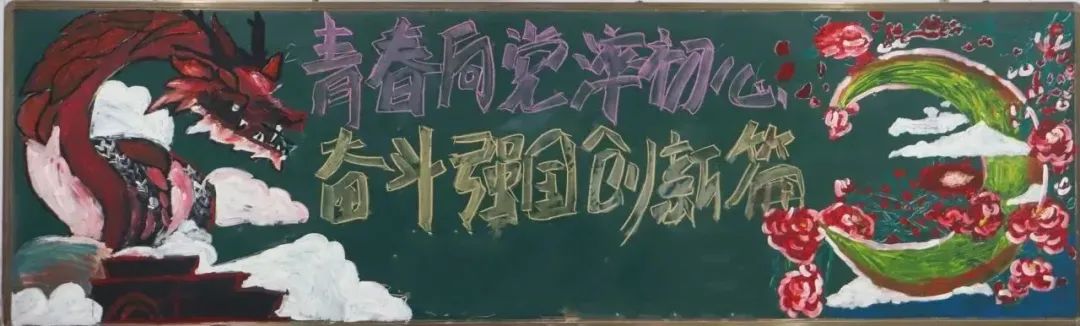 青春向党牢初心
奋斗强国创新篇